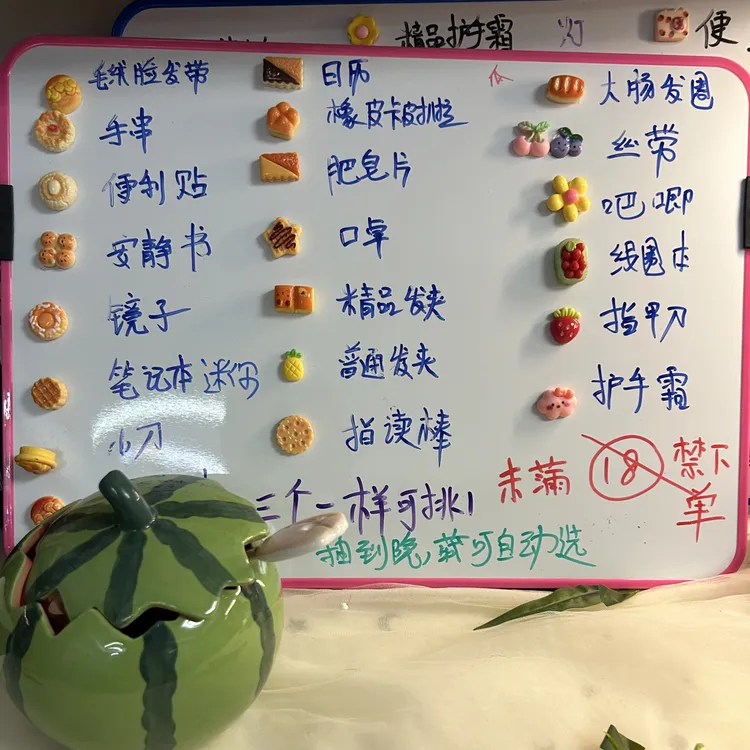 精品护手霜
灯
便
毛绒脸发带
手串
便利贴
安静书
镜子
笔记本迷你
小刀
日历
橡皮卡皮扒拉
肥皂片
口卓
精品发夹
普通发夹
指读棒
瓜
大肠发圈
丝带
吧唧
线圈本
指甲刀
护手霜
三个一样可挑1
抽到晚,薪可自动选
未满18禁下单